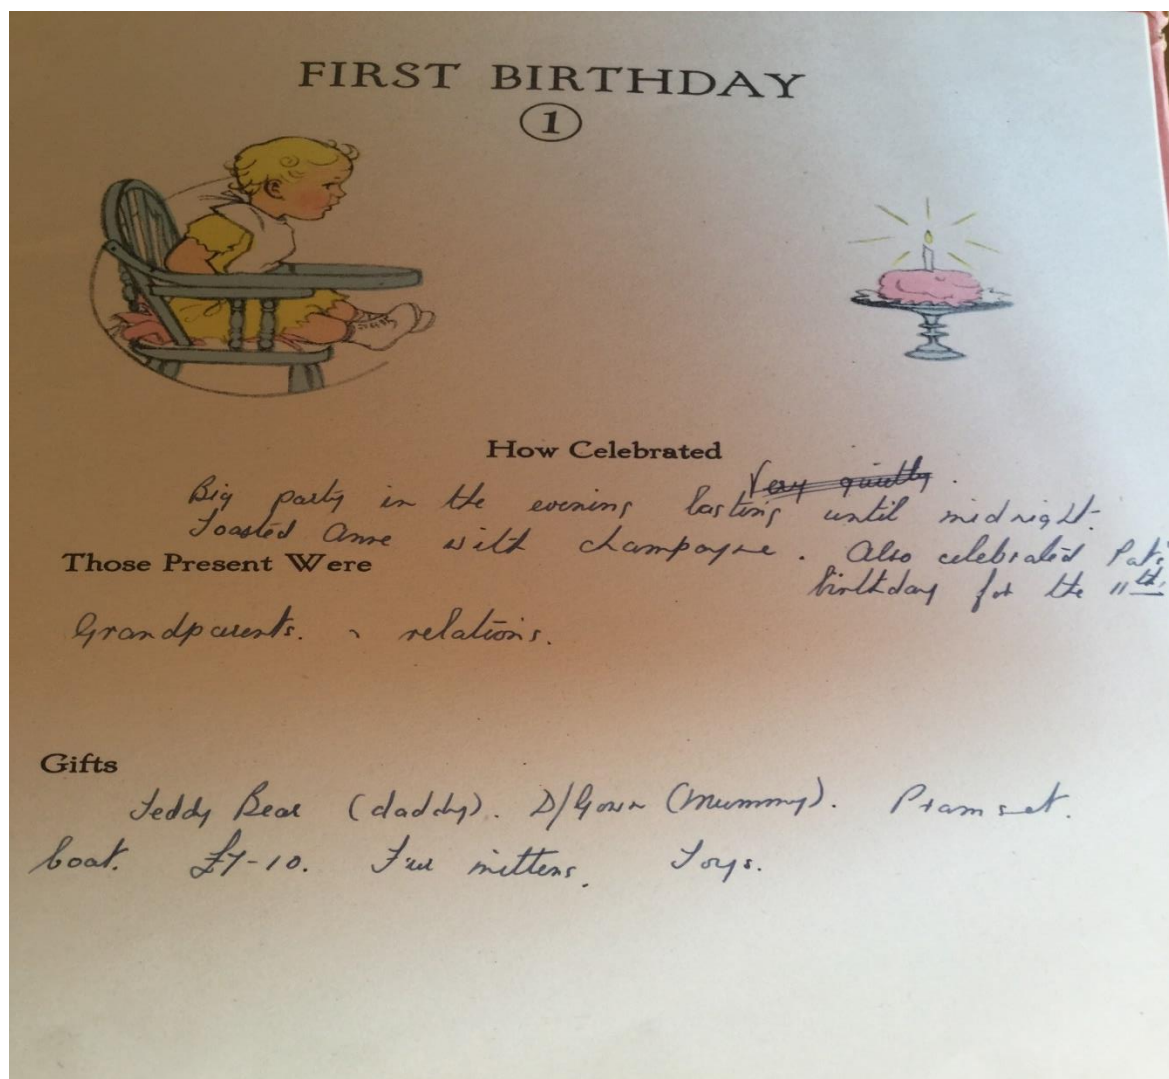 FIRST BIRTHDAY
1
How Celebrated
Very quietly.
Big party in the evening lasting until midnight.
Toasted Anne with champagne. Also celebrated Pat's
birthday for the 11th.
Those Present Were
Grandparents. relations.
Gifts
Teddy Bear (daddy). D/Gown (Mummy). Pram set.
Coat. £7-10. Fur mittens. Toys.